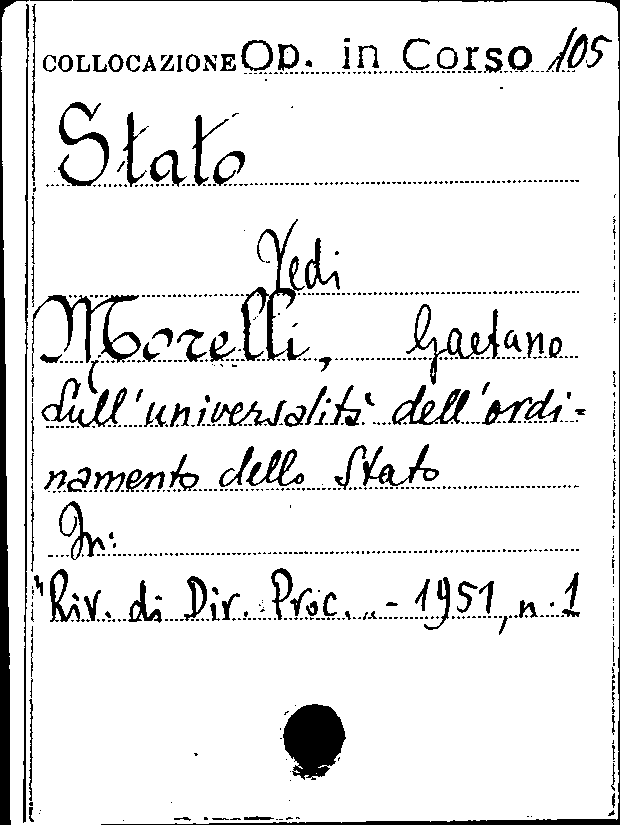 COLLOCAZIONE Op. in Corso 105
Stato
Vedi
Morelli, Gaetano
Sull'universalità dell'ordi-
namento dello Stato
In:
"Riv. di Dir. Proc. „ - 1951, n. 1